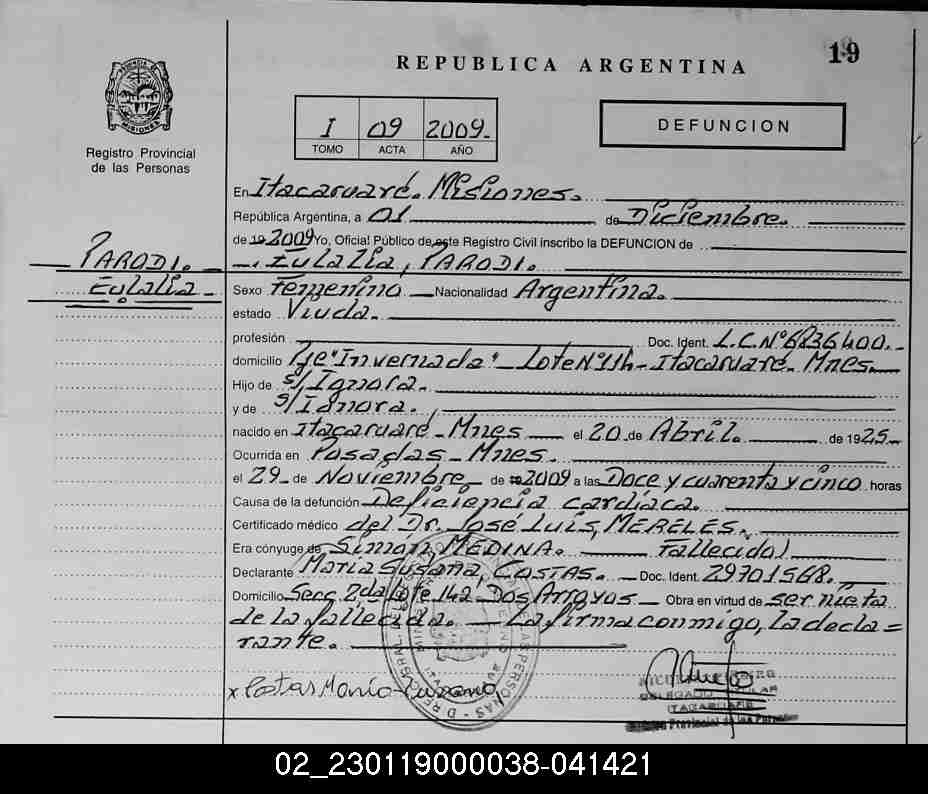 REPUBLICA ARGENTINA
19
MISIONES
Registro Provincial
de las Personas
I 09 2009.
TOMO ACTA AÑO
DEFUNCION
En Itacaruaré. Misiones.
República Argentina, a 01 de Diciembre.
de 19 2009 Yo, Oficial Público de este Registro Civil inscribo la DEFUNCION de
PARODI.
Eulalia
Eulalia, PARODI.
Sexo Femenino Nacionalidad Argentina.
estado Viuda.
profesión Doc. Ident. L.C.Nº6836400.
domicilio Pje "Invernada" Lote Nº 114 - Itacaruaré. Mnes.
Hijo de s/Ignora.
y de s/Ignora.
nacido en Itacaruaré, Mnes el 20 de Abril. de 1925
Ocurrida en Posadas - Mnes.
el 29 de Noviembre de 2009 a las Doce y cuarenta y cinco horas
Causa de la defunción Deficiencia cardíaca.
Certificado médico del Dr. José Luis, MERELES.
Era cónyuge de Simon MEDINA. Fallecido/
Declarante María Susana, COSTAS. Doc. Ident. 29701568.
Domicilio Secc 2da Lote 142 Dos Arroyos Obra en virtud de ser nieta
de la fallecida. La firma conmigo, la decla=
rante.
x Costas María Susana
DELEGADO TITULAR
ITACARUARE
Provincial de las Personas
02_230119000038-041421